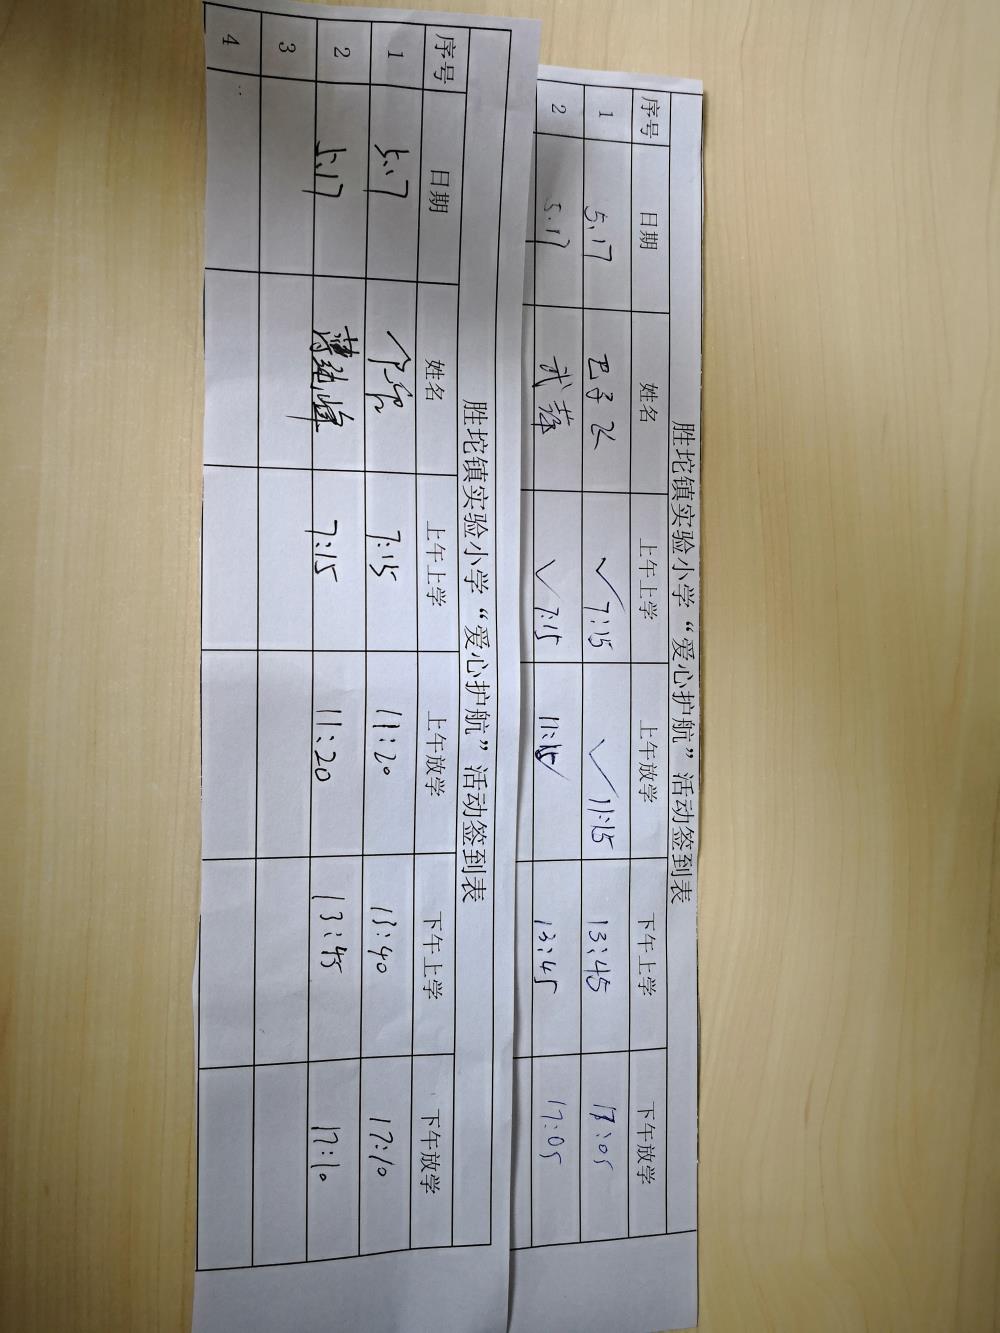 胜坨镇实验小学“爱心护航”活动签到表
序号 日期 姓名 上午上学 上午放学 下午上学 下午放学
1 5.17 巴子飞 ✓7:15 ✓11:15 13:45 17:05
2 5.17 武 ✓7:15 11:15 13:45 17:05
胜坨镇实验小学“爱心护航”活动签到表
序号 日期 姓名 上午上学 上午放学 下午上学 下午放学
1 5.17 7:15 11:20 13:40 17:10
2 5.17 薄纯峰 7:15 11:20 13:45 17:10
3
4